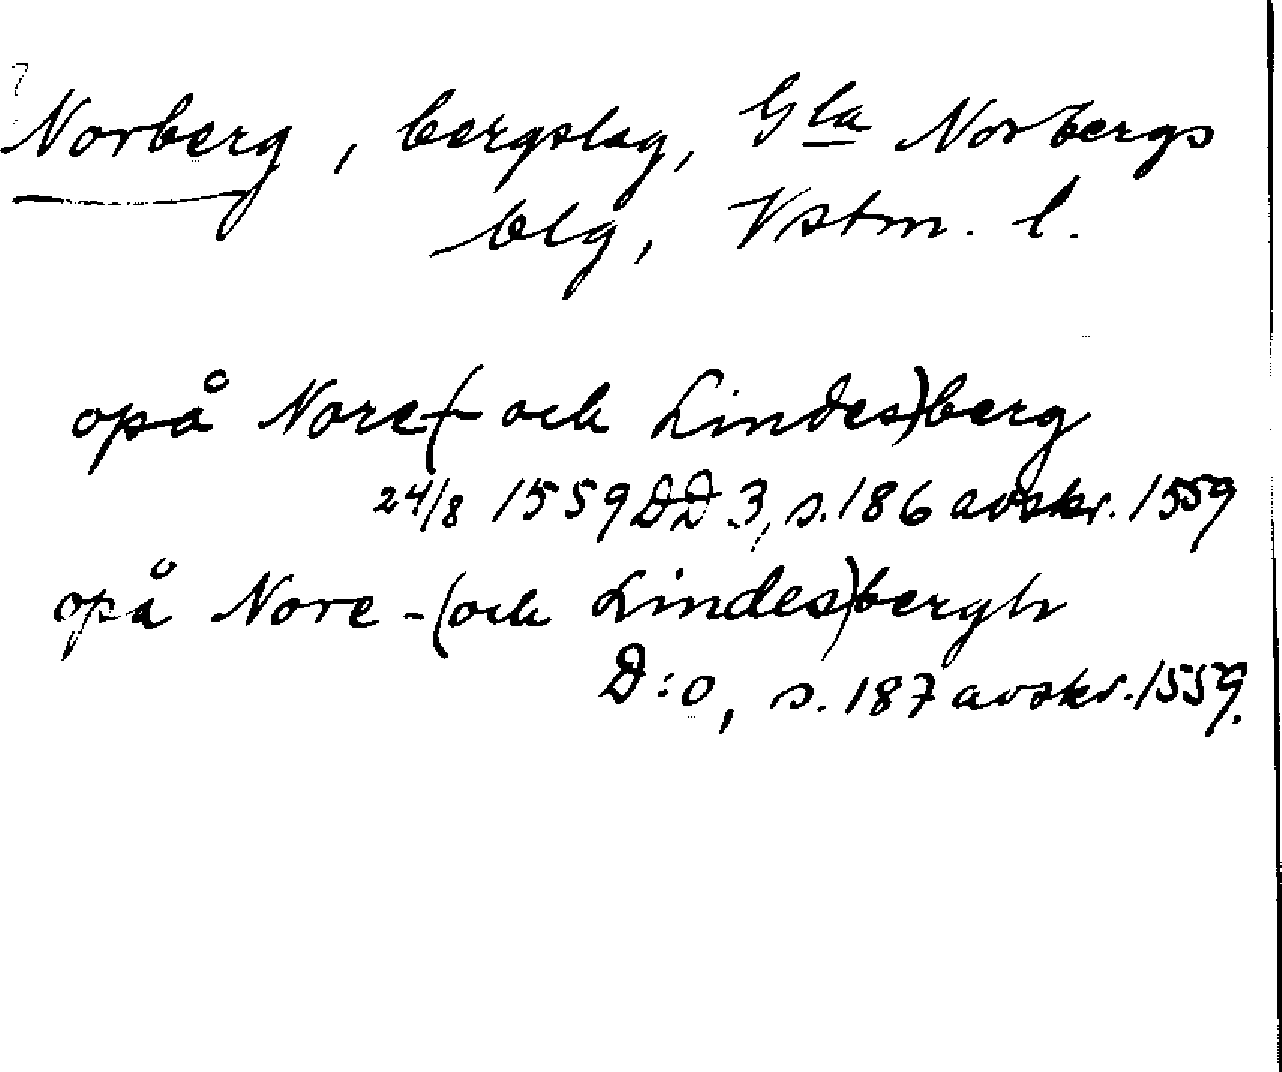 Norberg, bergslag, Gla Norbergs
blg, Vstm. l.
opå Nore-(och Lindes)berg
24/8 1559 DD 3, s. 186 avskr. 1559
opå Nore-(och Lindes)bergh
D:o, s. 187 avskr. 1559.